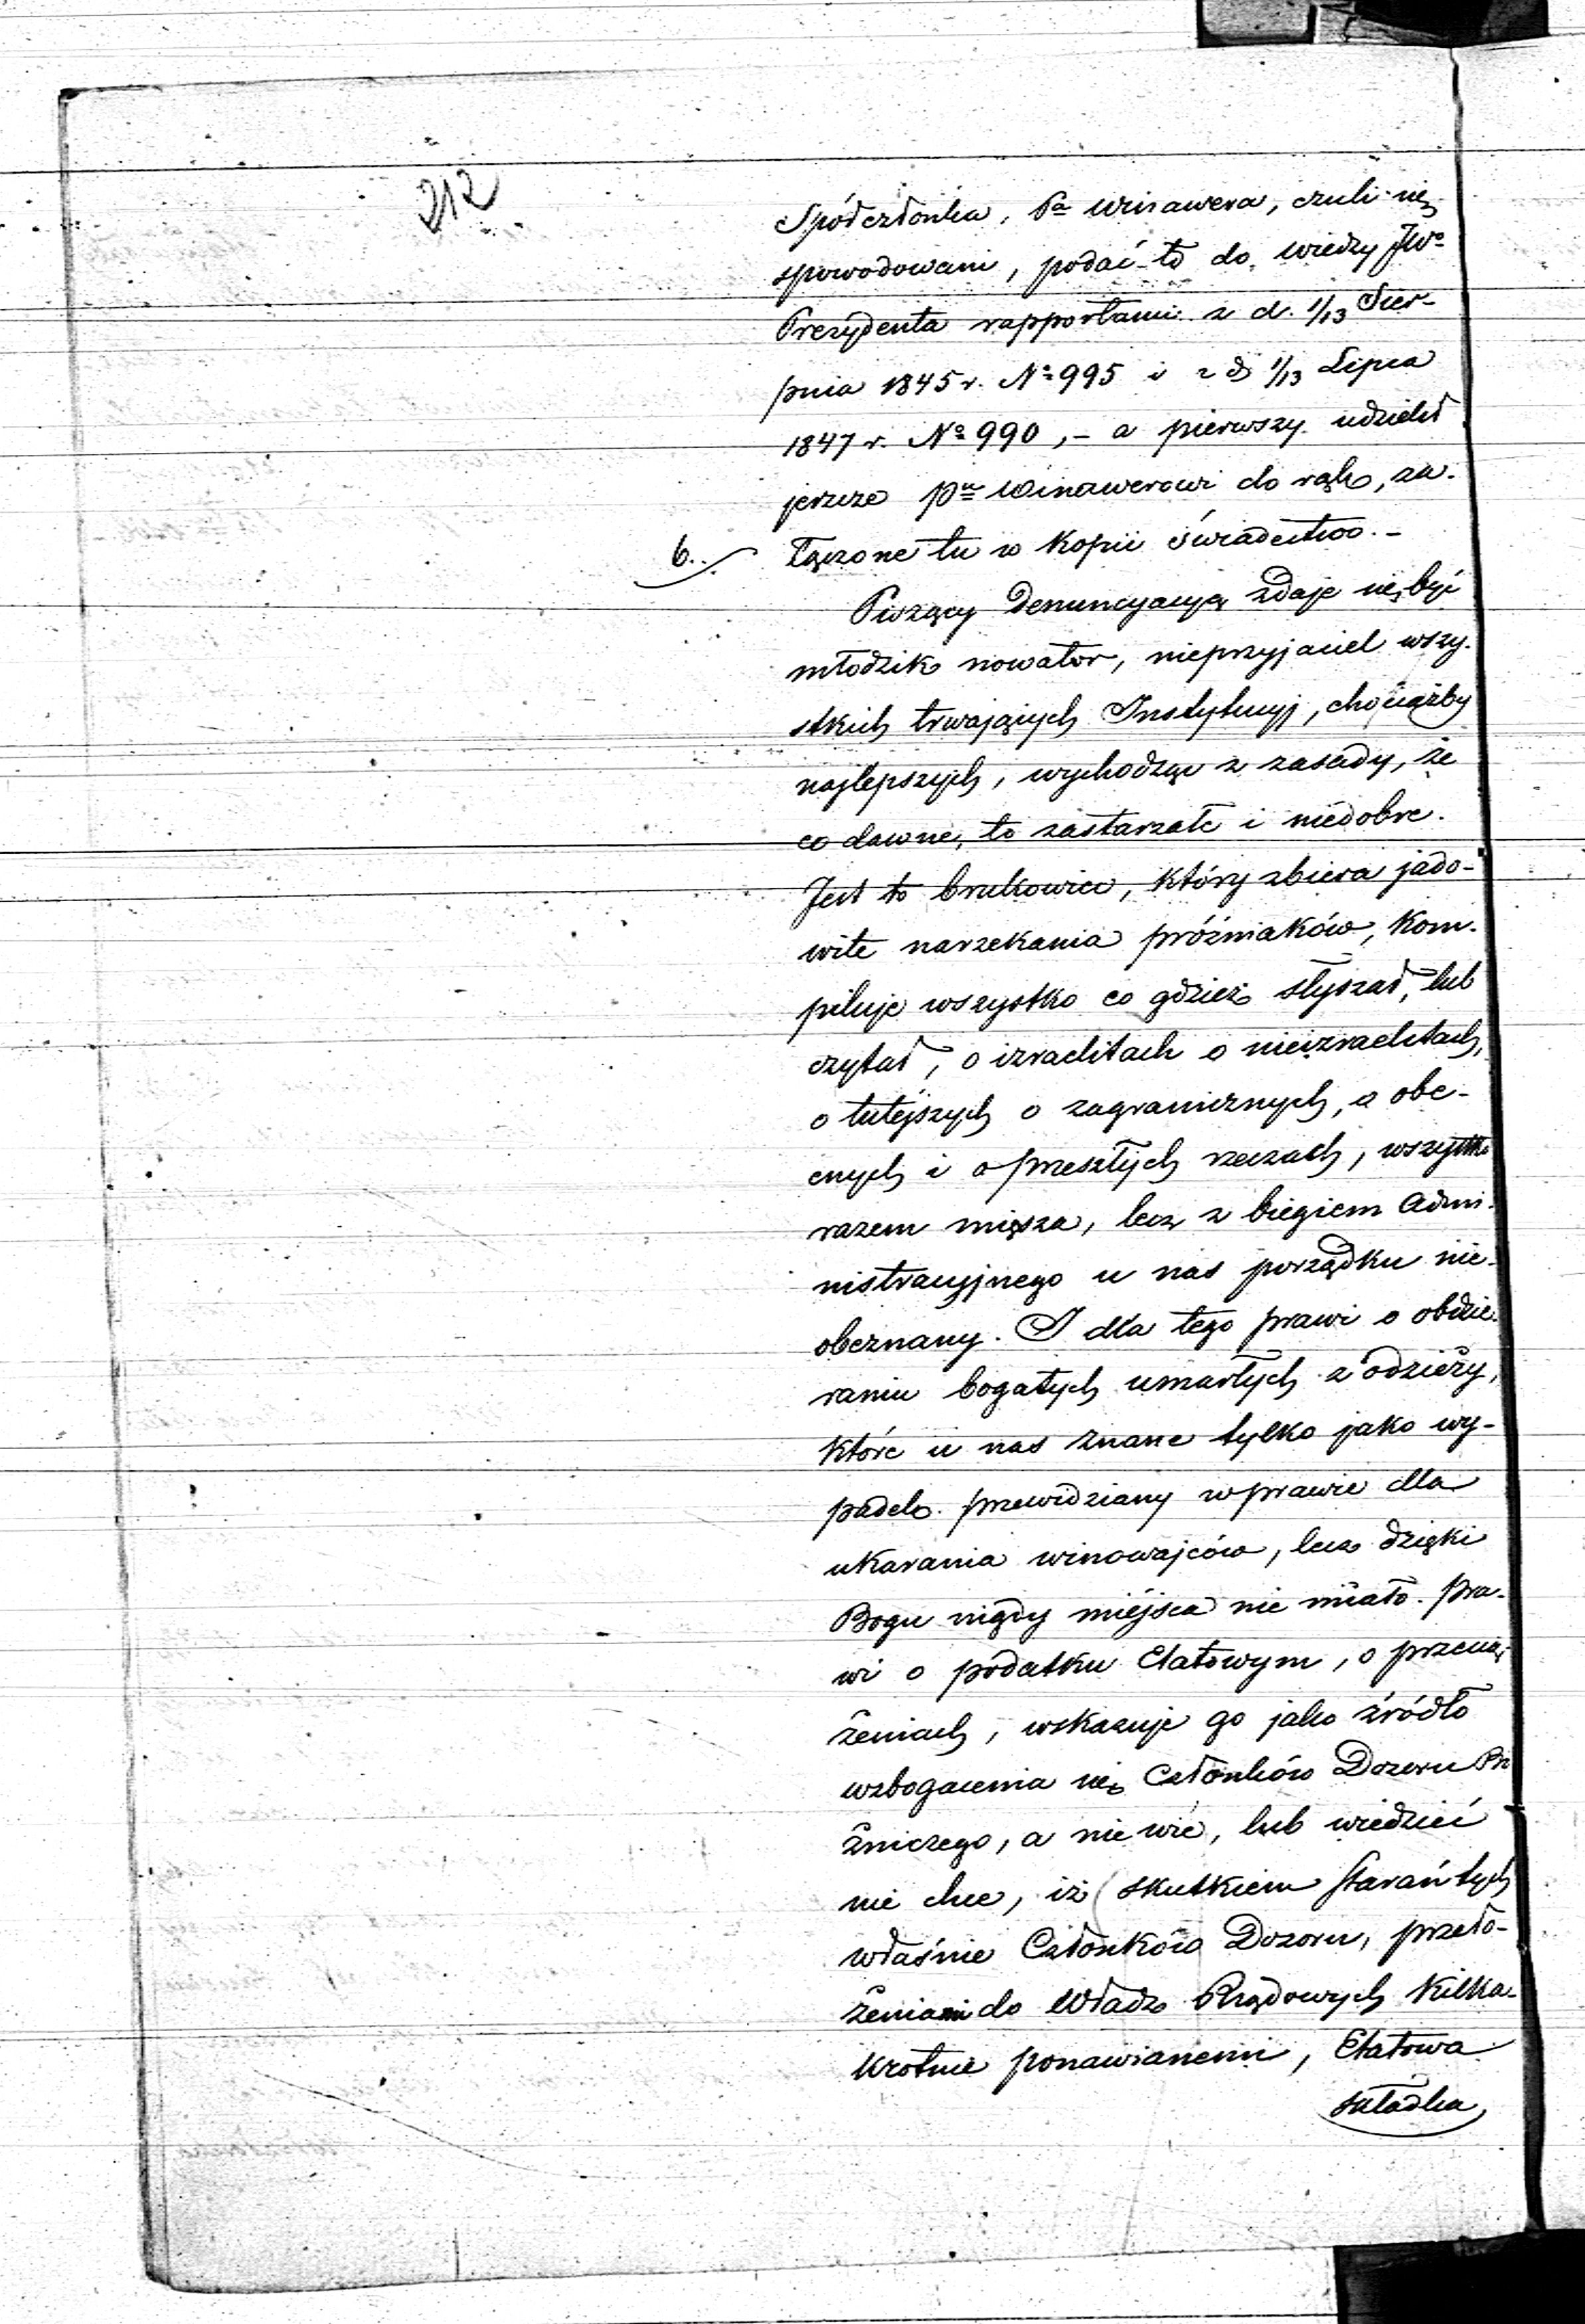 212
Spółczłonka, Pa Winawera, czuli się
spowodowani, podać to do wiedzy JWo
Prezydenta rapportami z d. 1/13 Sier-
pnia 1845 r. No 995 i z d 1/13 Lipca
1847 r. No 990, - a pierwszy udzielił
jeszcze Pu Winawerowi do rąk, za-
6. łączone tu w kopii świadectwo. -
Piszący denuncyacyą zdaje się być
młodzik nowator, nieprzyjaciel wszy-
stkich trwających Instytucyj, chociażby
najlepszych, wychodząc z zasady, że
co dawne, to zastarzałe i niedobre.
Jest to brukowiec, który zbiera jado-
wite narzekania próżniaków, kom-
piluje wszystko co gdzieś słyszał, lub
czytał, o izraelitach o nieizraelitach,
o tutéjszych o zagranicznych, o obe-
cnych i o przeszłych rzeczach, wszystko
razem miesza, lecz z biegiem admi-
nistracyjnego u nas porządku nie-
obeznany. I dla tego prawi o obdzie-
raniu bogatych umarłych z odzieży,
które u nas znane tylko jako wy-
padek przewidziany w prawie dla
ukarania winowajców, lecz dzięki
Bogu nigdy miéjsca nie miało. Pra-
wi o podatku Etatowym, o przecią-
żeniach, wskazuje go jako źródło
wzbogacenia się Członków Dozoru Bó
żniczego, a nie wié, lub wiedzieć
nie chce, iż skutkiem starań tych
właśnie Członków Dozoru, przeło-
żeniami do Władz Rządowych kilka-
krotnie ponawianemi, Etatowa
składka,